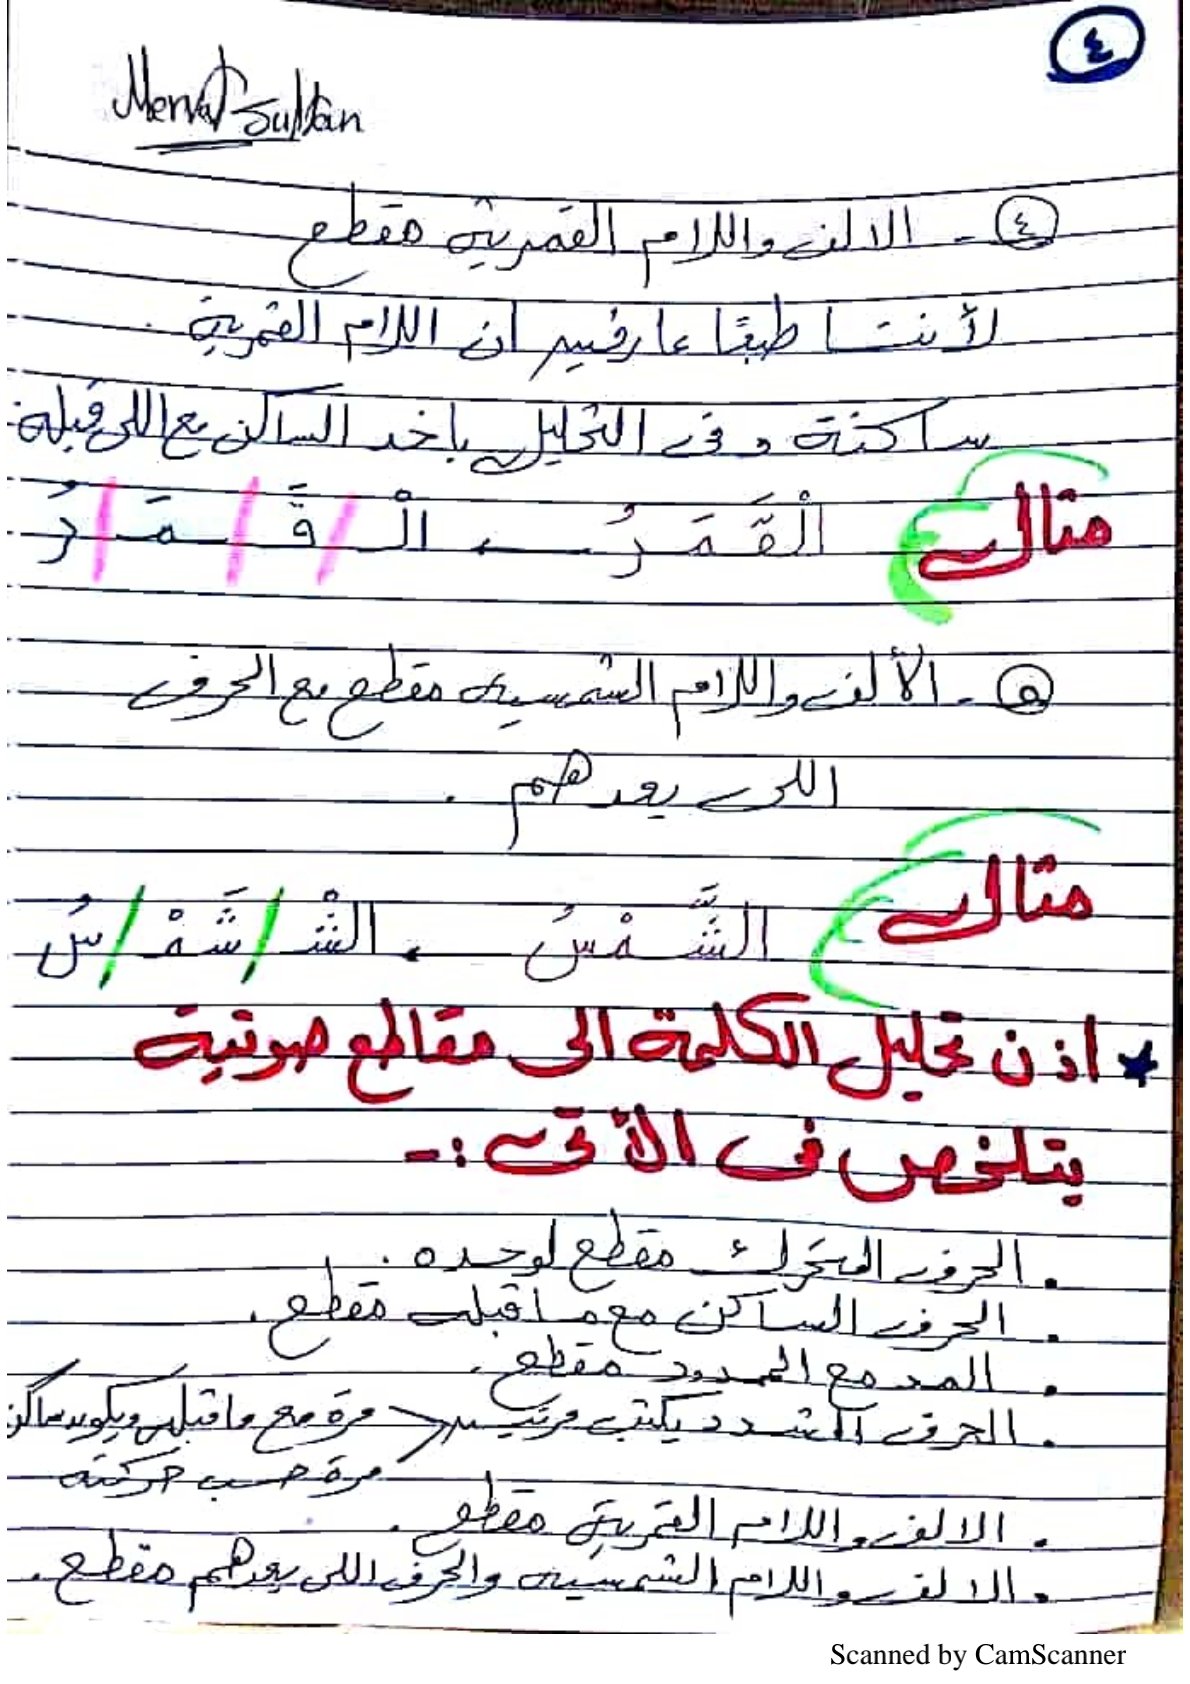 ٤
Mervat Sultan
٤- الالف واللام القمرية مقطع
لأننا طبعًا عارفين ان اللام القمرية
ساكنة وفى التحليل باخد الساكن مع اللى قبله
مثال الْقَمَرُ ← الْ / قَ / مَ / رُ
٥- الألف واللام الشمسية مقطع مع الحرف
اللى بعدهم .
مثال الشَّمْسُ ← الشْ / شَمْ / سُ
★ اذن تحليل الكلمة الى مقاطع صوتية
يتلخص فى الأتى :-
. الحرف المتحرك مقطع لوحده .
. الحرف الساكن مع ما قبله مقطع .
. المد مع الممدود مقطع .
. الحرف المشدد يكتب مرتين < مرة مع ماقبله ويكون ساكن
مرة حسب حركته
. الالف واللام القمرية مقطع .
. الالف واللام الشمسية والحرف اللى بعدهم مقطع .
Scanned by CamScanner